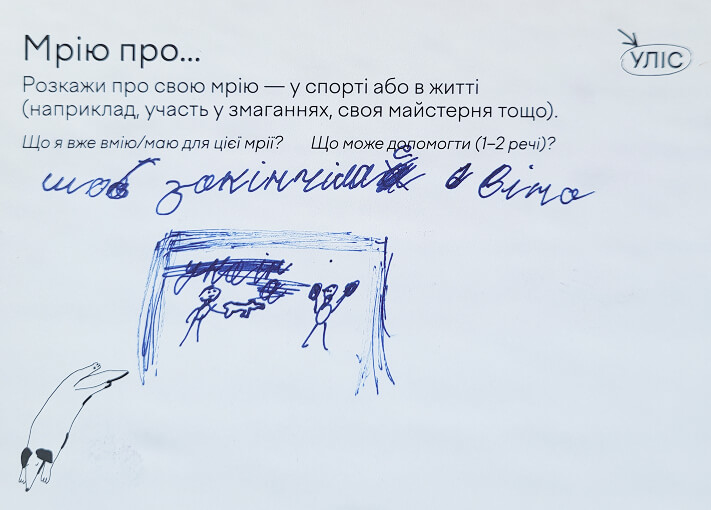 Мрію про...
УЛІС
Розкажи про свою мрію — у спорті або в житті
(наприклад, участь у змаганнях, своя майстерня тощо).
Що я вже вмію/маю для цієї мрії? Що може допомогти (1–2 речі)?
шоб закінчілас віно